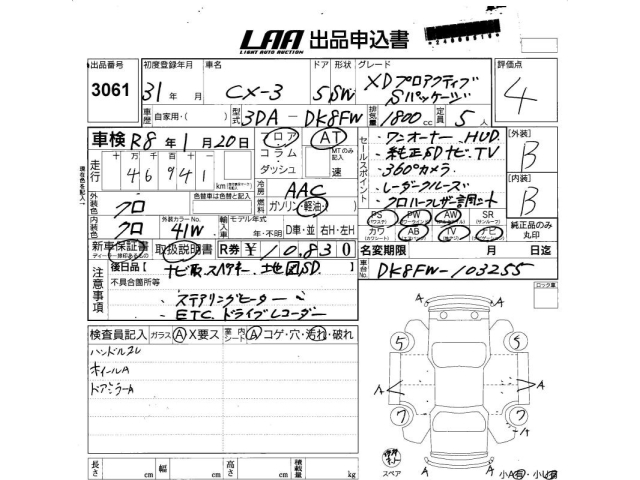 LAA 出品申込書
LIGHT AUTO AUCTION
出品番号 初度登録年月 車名 ドア 形状 グレード 評価点
3061 31年 月 CX-3 5 SW XDプロアクティブ Sパッケージ 4
車歴 自家用・( ) 型式 3DA - DK8FW 排気量 1800 cc 定員 5 人
車検 R8年1月20日 フロア AT セールスポイント ・ワンオーナー、HUD [外装] B
コラム MTのみ記入 ・純正SDナビ、TV
走行 十万 万 千 百 十 一 ダッシュ 速 ・360°カメラ
4 6 9 4 1 km ・レーダークルーズ [内装] B
冷房 AAC ・クロハーフレザー調シート
外装色 クロ 色替車は色替と記入 燃料 ガソリン・軽油・
PS PW AW SR 純正品のみ丸印
内装色 クロ 外装カラーNo. 41W 輸入車 モデル年式 年・不明 D車・並 右H・左H
カワ AB TV ナビ
新車保証書 取扱説明書 R券 ¥ 10,830 名変期限 月 日迄
注意事項 後日品 [ ナビ取、スペアキー、地図SD
車台No. DK8FW-103255
不具合箇所等
・ステアリングヒーター
・ETC、ドライブレコーダー
ロック車
検査員記入 ガラス A X要ス 室内シート A コゲ・穴・汚れ・破れ
ハンドルスレ
ホイールA
ドアミラーA
A A
5 5
A A
7 7
A
A A
スペア
長さ cm 幅 cm 高さ cm 積載量 kg
小A有・小U有